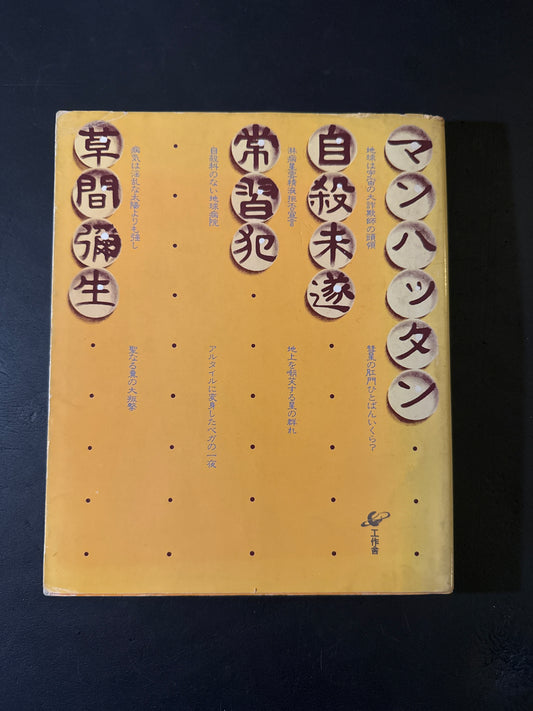 マンハッタン
地球は宇宙の大詐欺師の頭領
彗星の肛門ひとばんいくら?
自殺未遂
地上を嘲笑する星の群れ
常習犯
自殺科のない地球病院
アルタイルに変身したベガの一夜
病気は淫乱な太陽よりも強し
聖なる糞の大散祭
草間彌生
工作舎